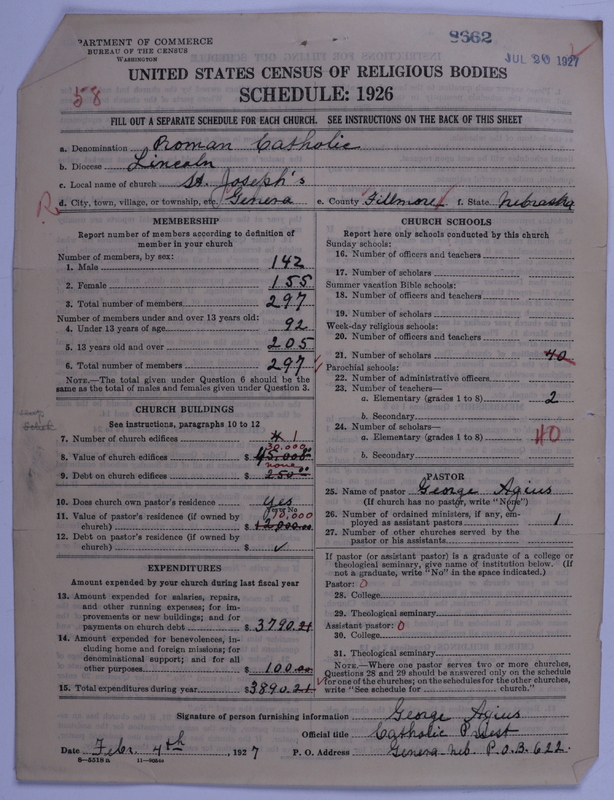 PARTMENT OF COMMERCE
BUREAU OF THE CENSUS
WASHINGTON
8662
JUL 20 1927
58
UNITED STATES CENSUS OF RELIGIOUS BODIES
SCHEDULE: 1926
FILL OUT A SEPARATE SCHEDULE FOR EACH CHURCH. SEE INSTRUCTIONS ON THE BACK OF THIS SHEET
a. Denomination Roman Catholic
b. Diocese Lincoln
c. Local name of church St. Joseph's
R d. City, town, village, or township, etc. Geneva e. County Fillmore f. State Nebraska
MEMBERSHIP
Report number of members according to definition of
member in your church
Number of members, by sex:
1. Male 142
2. Female 155
3. Total number of members 297
Number of members under and over 13 years old:
4. Under 13 years of age 92
5. 13 years old and over 205
6. Total number of members 297
NOTE.—The total given under Question 6 should be the
same as the total of males and females given under Question 3.
CHURCH BUILDINGS
See instructions, paragraphs 10 to 12
7. Number of church edifices 1
30.000
8. Value of church edifices $ 45,000.00
none
9. Debt on church edifices $ 250.00
10. Does church own pastor's residence yes
Yes or No
11. Value of pastor's residence (if owned by 10,000
church) $ 12,000.00
12. Debt on pastor's residence (if owned by
church) $ ✓
EXPENDITURES
Amount expended by your church during last fiscal year
13. Amount expended for salaries, repairs,
and other running expenses; for im-
provements or new buildings; and for
payments on church debt $ 3790.21
14. Amount expended for benevolences, in-
cluding home and foreign missions; for
denominational support; and for all
other purposes $ 100.00
15. Total expenditures during year $ 3890.21
CHURCH SCHOOLS
Report here only schools conducted by this church
Sunday schools:
16. Number of officers and teachers
17. Number of scholars
Summer vacation Bible schools:
18. Number of officers and teachers
19. Number of scholars
Week-day religious schools:
20. Number of officers and teachers
21. Number of scholars 40
Parochial schools:
22. Number of administrative officers
23. Number of teachers—
a. Elementary (grades 1 to 8) 2
b. Secondary
24. Number of scholars—
a. Elementary (grades 1 to 8) 40
b. Secondary
PASTOR
25. Name of pastor George Agius
(If church has no pastor, write "None")
26. Number of ordained ministers, if any, em-
ployed as assistant pastors 1
27. Number of other churches served by the
pastor or his assistants
If pastor (or assistant pastor) is a graduate of a college or
theological seminary, give name of institution below. (If
not a graduate, write "No" in the space indicated.)
Pastor: 0
28. College
29. Theological seminary
Assistant pastor: 0
30. College
31. Theological seminary
NOTE.—Where one pastor serves two or more churches,
Questions 28 and 29 should be answered only on the schedule
for one of the churches; on the schedules for the other churches,
write "See schedule for church."
Signature of person furnishing information George Agius
Official title Catholic Priest
Date Febr. 4th, 1927 P. O. Address Geneva Neb P.O.B. 622.
8—5518a 11—9054